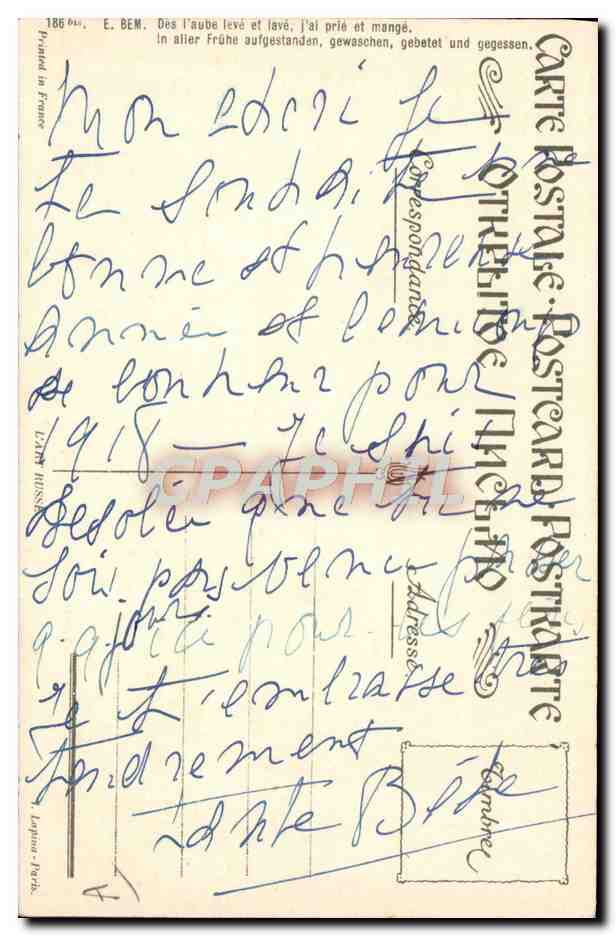 186 bis. E. BEM. Dès l'aube levé et lavé, j'ai prié et mangé.
In aller Frühe aufgestanden, gewaschen, gebetet und gegessen.
Printed in France
CARTE POSTALE·POSTCARD·POSTKARTE
ОТКРЫТОЕ ПИСЬМО
Correspondance
Adresse
Timbre
L'ART RUSSE
I. Lapina - Paris.
CPAPHIL
Mon chéri Je
te souhaite une
bonne et
année et
de bonheur pour
1918 — Je suis
désolée que tu ne
sois pas venu
jours pour
Je t'embrasse très
tendrement
tante Bébé